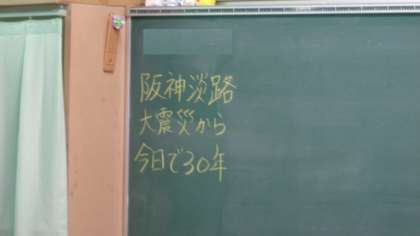 阪神淡路
大震災から
今日で30年